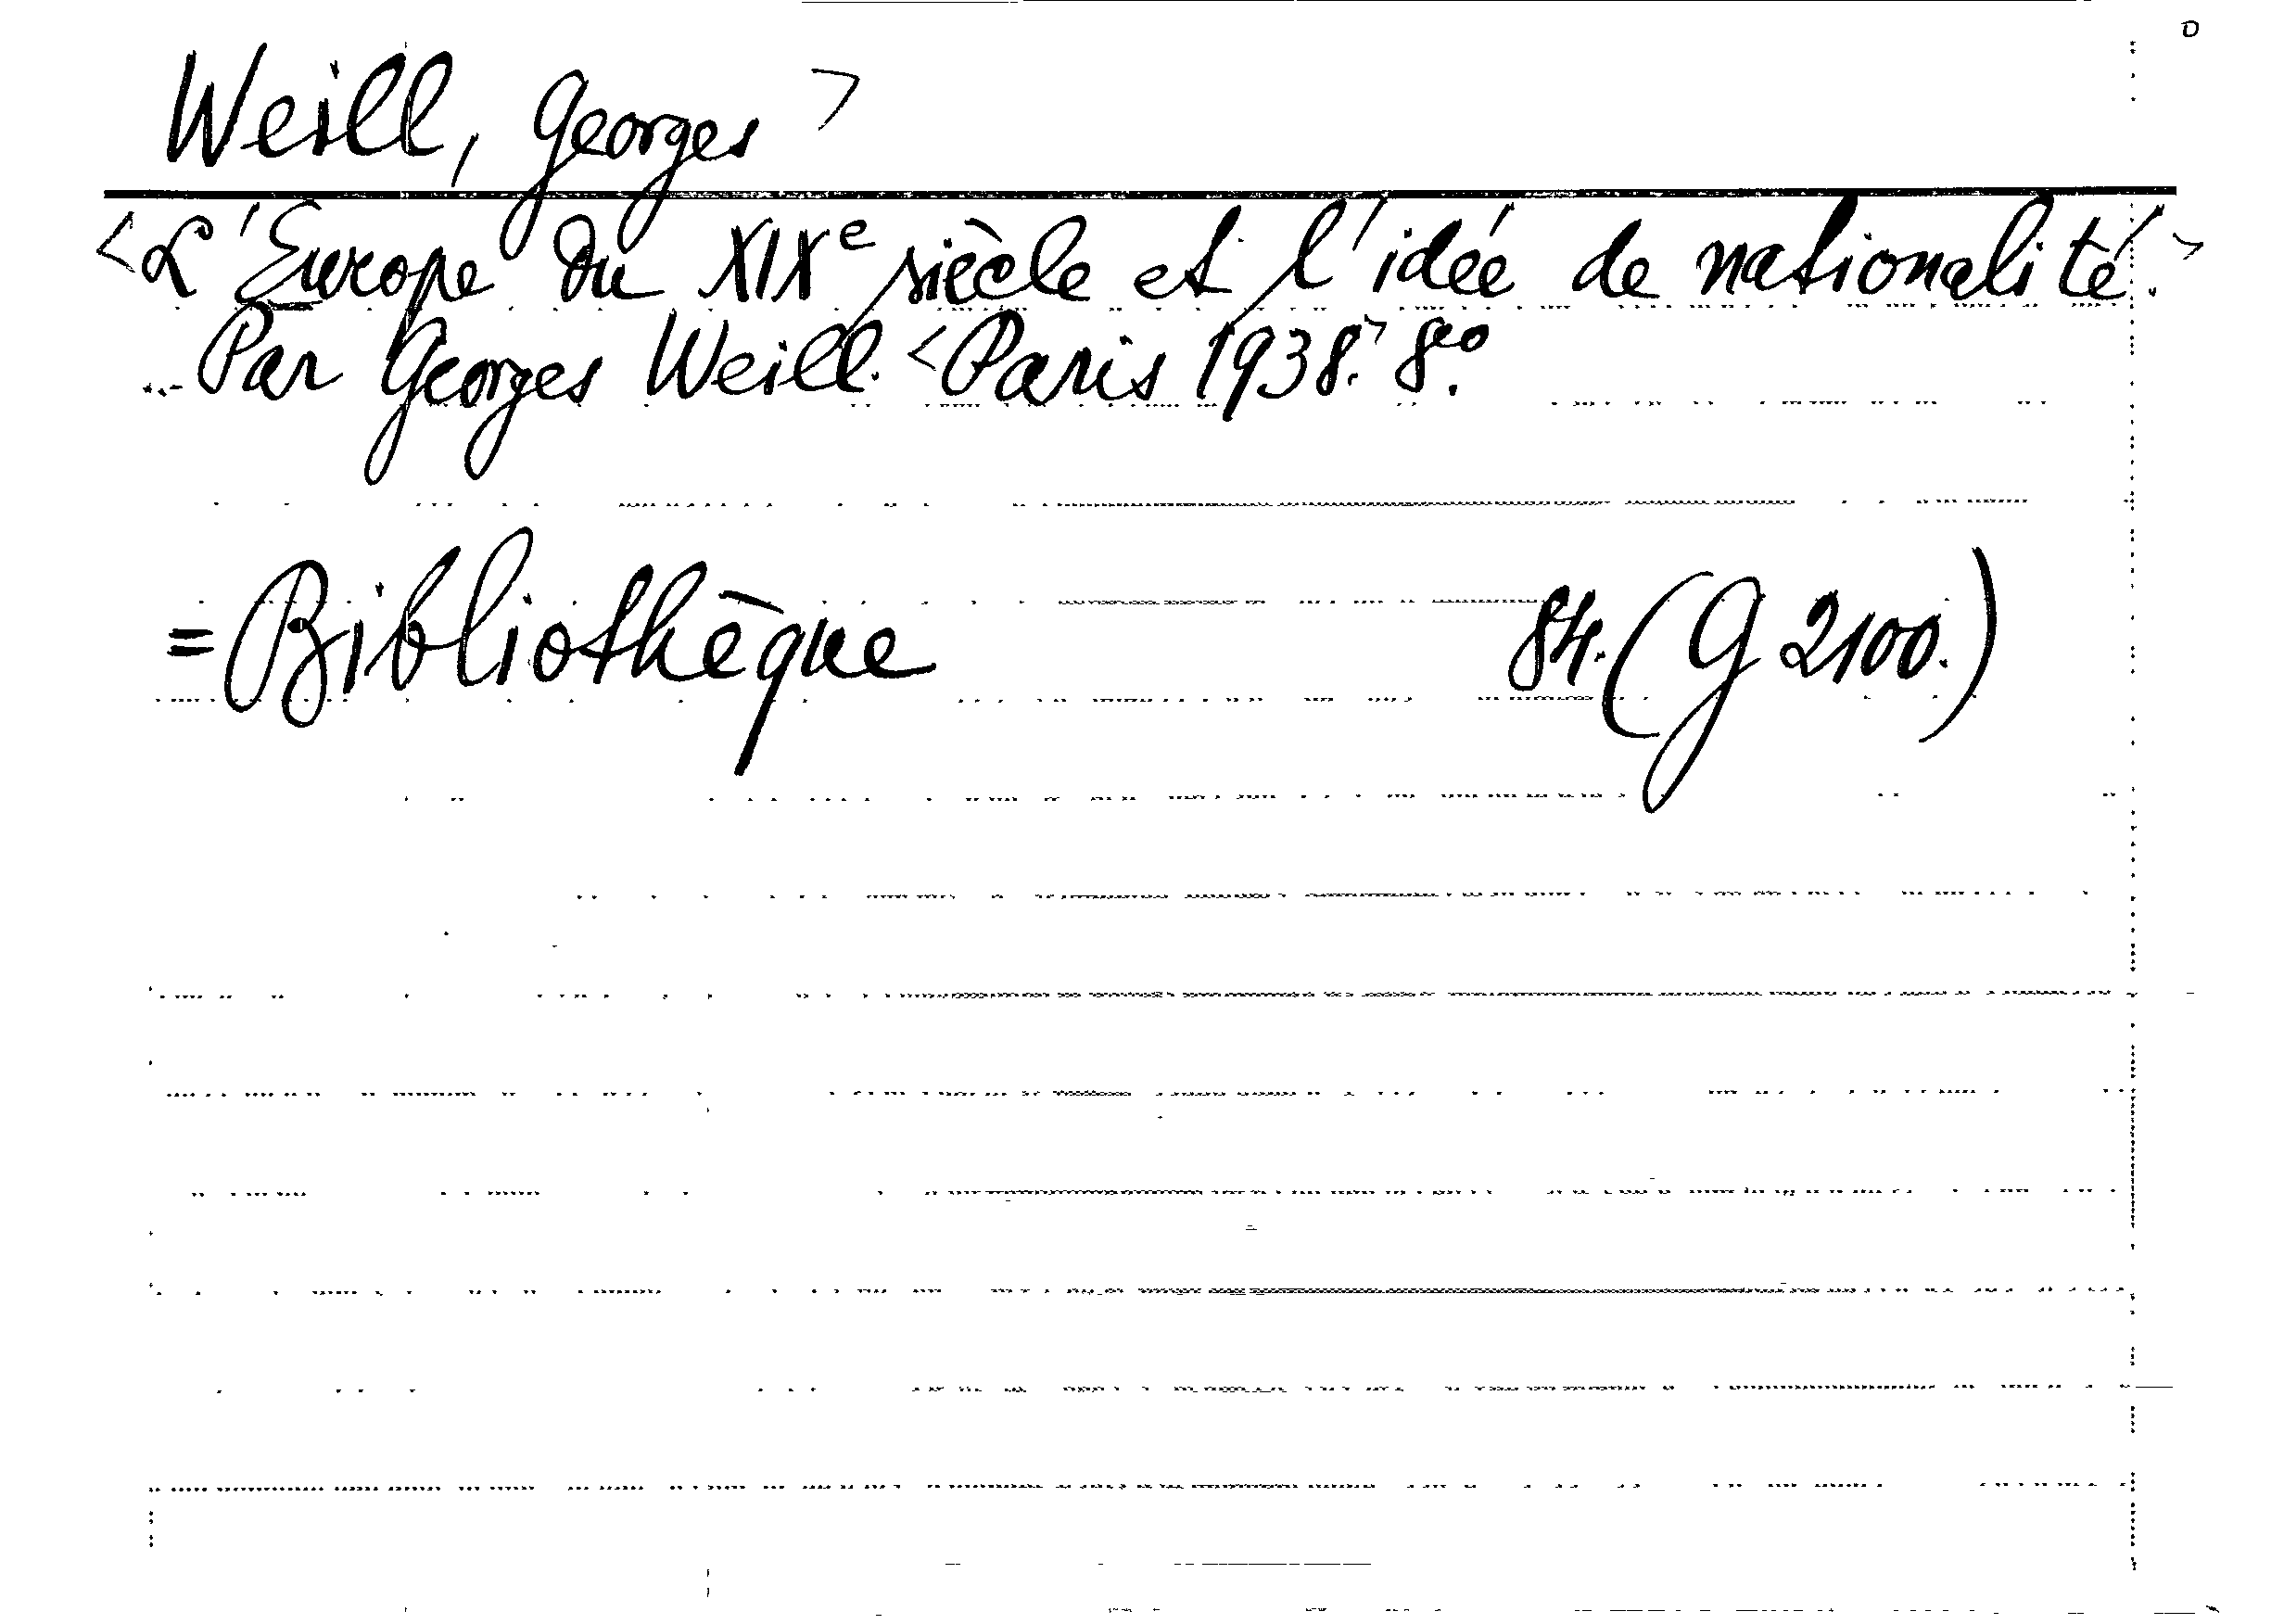 Weill, Georges >
<L'Europe du XIXe siècle et l'idée de nationalité.>
Par Georges Weill. <Paris 1938.> 8eo.
= Bibliothèque 84. (G 2100.)